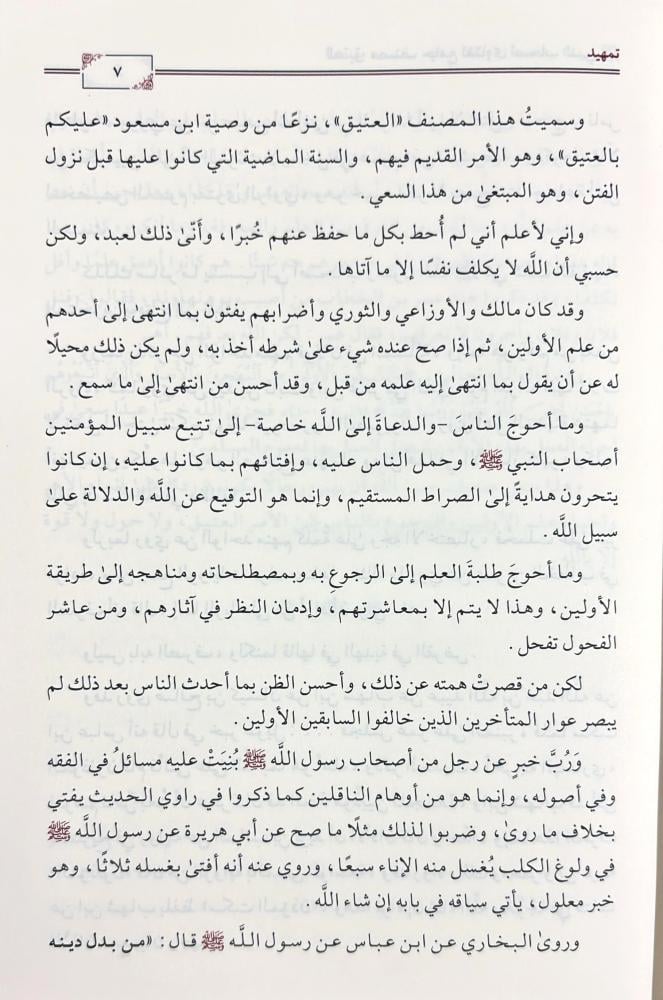 تمهيد
٧
وسميتُ هذا المصنف «العتيق»، نزعًا من وصية ابن مسعود «عليكم
بالعتيق»، وهو الأمر القديم فيهم، والسنة الماضية التي كانوا عليها قبل نزول
الفتن، وهو المبتغىٰ من هذا السعي .
وإني لأعلم أني لم أُحط بكل ما حفظ عنهم خُبرًا، وأَنّىٰ ذلك لعبد، ولكن
حسبي أن اللَّه لا يكلف نفسًا إلا ما آتاها .
وقد كان مالك والأوزاعي والثوري وأضرابهم يفتون بما انتهىٰ إلىٰ أحدهم
من علم الأولين، ثم إذا صح عنده شيء علىٰ شرطه أخذ به، ولم يكن ذلك محيلًا
له عن أن يقول بما انتهىٰ إليه علمه من قبل، وقد أحسن من انتهىٰ إلىٰ ما سمع .
وما أحوجَ الناسَ -والدعاةَ إلىٰ اللَّه خاصة- إلىٰ تتبع سبيل المؤمنين
أصحاب النبي ﷺ، وحمل الناس عليه، وإفتائهم بما كانوا عليه، إن كانوا
يتحرون هدايةً إلىٰ الصراط المستقيم، وإنما هو التوقيع عن اللَّه والدلالة علىٰ
سبيل اللَّه .
وما أحوجَ طلبةَ العلم إلىٰ الرجوعِ به وبمصطلحاته ومناهجه إلىٰ طريقة
الأولين، وهذا لا يتم إلا بمعاشرتهم، وإدمان النظر في آثارهم، ومن عاشر
الفحول تفحل .
لكن من قصرتْ همته عن ذلك، وأحسن الظن بما أحدث الناس بعد ذلك لم
يبصر عوار المتأخرين الذين خالفوا السابقين الأولين .
وَرُبَّ خبرٍ عن رجل من أصحاب رسول اللَّه ﷺ بُنِيَتْ عليه مسائلُ في الفقه
وفي أصوله، وإنما هو من أوهام الناقلين كما ذكروا في راوي الحديث يفتي
بخلاف ما روىٰ، وضربوا لذلك مثلًا ما صح عن أبي هريرة عن رسول اللَّه ﷺ
في ولوغ الكلب يُغسل منه الإناء سبعًا، وروي عنه أنه أفتىٰ بغسله ثلاثًا، وهو
خبر معلول، يأتي سياقه في بابه إن شاء اللَّه .
وروىٰ البخاري عن ابن عباس عن رسول اللَّه ﷺ قال: «من بدل دينه